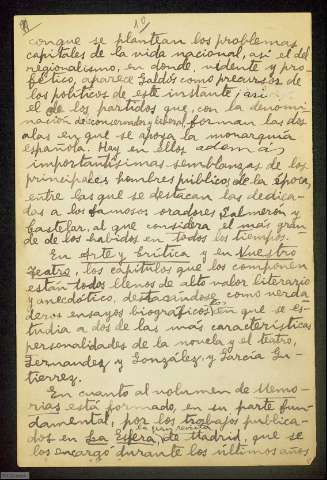 10
conque se plantean los problemas
capitales de la vida nacional, así el del
regionalismo, en donde, vidente y pro-
fético, aparece Galdós como precursor de
los políticos de este instante; así
el de los partidos que, con la denomi-
nación de conservador y liberal forman las dos
alas en que se apoya la monarquía
española. Hay en ellos además
importantísimas semblanzas de los
principales hombres públicos de la época,
entre las que se destacan las dedica-
das a los famosos oradores Salmerón y
Castelar, al que considera el más gran-
de de los habidos en todos los tiempos.
En Arte y Crítica y en Nuestro
Teatro, los capítulos que los componen
están todos llenos de alto valor literario
y anecdótico, destacándose, como verda-
deros ensayos biográficos, en que se es-
tudia a dos de las más características
personalidades de la novela y el teatro,
Fernandez y González, y García Gu-
tierrez.
En cuanto al volumen de Memo-
rias está formado, en su parte fun-
damental, por los trabajos publica-
la gran revista
dos en La Esfera, de Madrid, que se
los encargó durante los últimos años